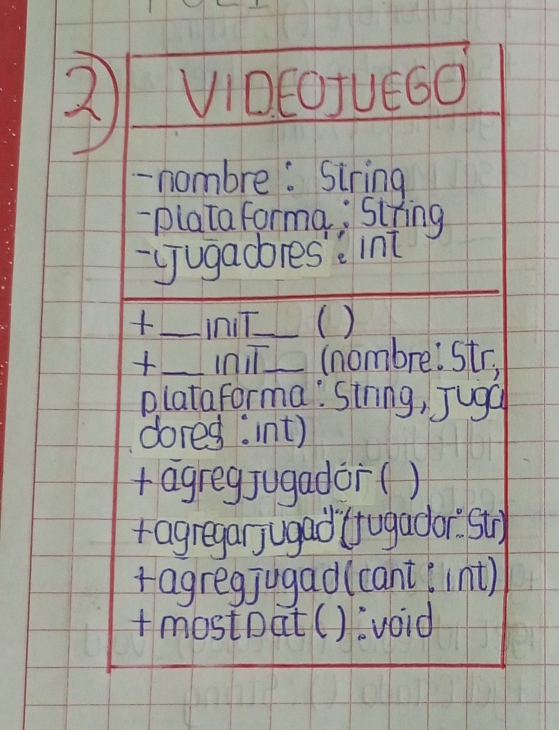 2)
VIDEOJUEGO
-nombre: String
-plataforma: String
-jugadores: int
+__init__()
+__init__(nombre: Str,
plataforma: String, juga
dores: int)
+agregjugador()
+agregarjugad(jugador: Str)
+agregjugad(cant: int)
+mostDat(): void